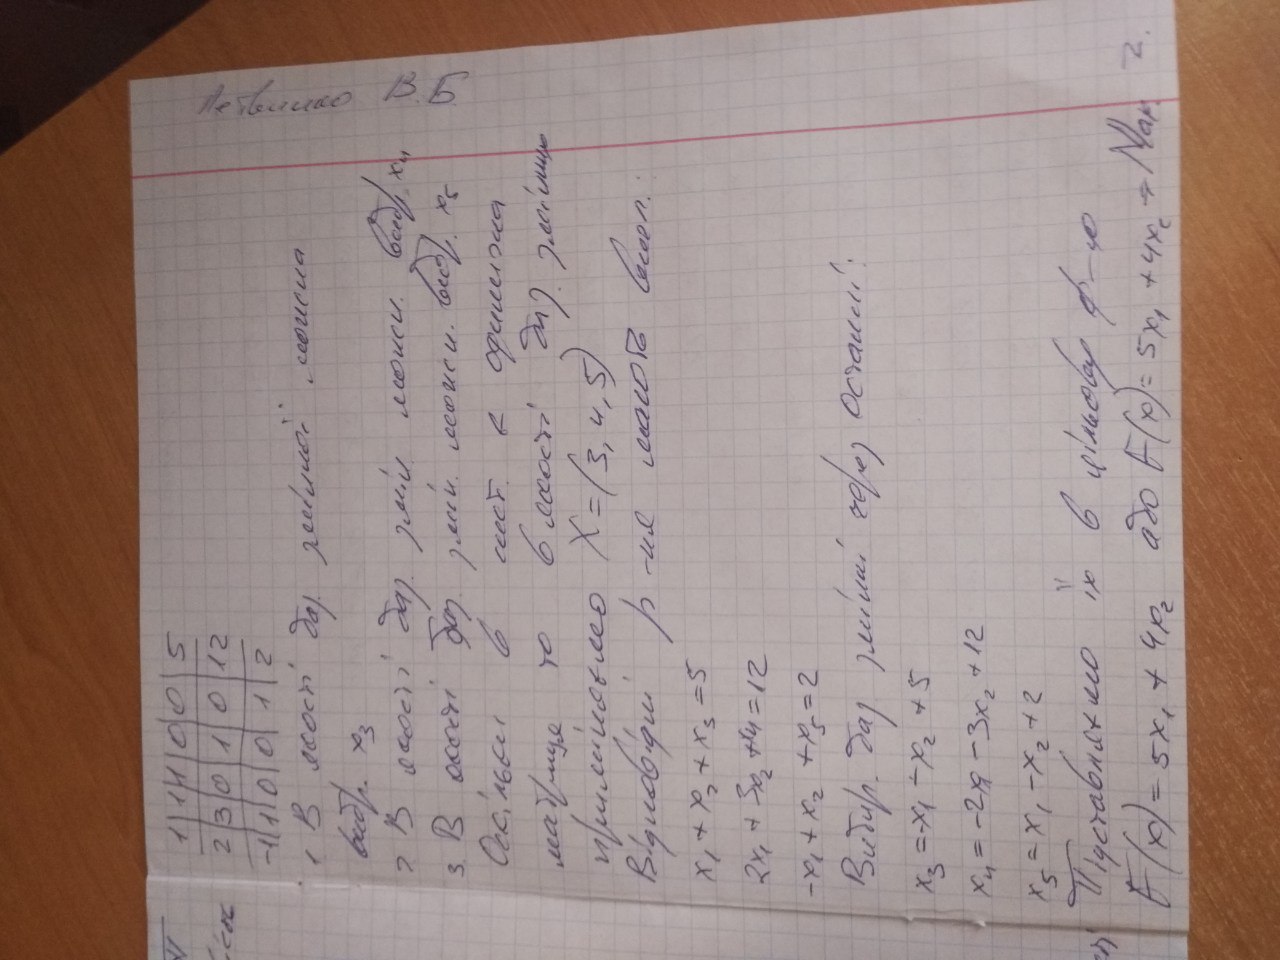 В.Б
1 | 1 | 1 | 0 | 0 | 5
2 | 3 | 0 | 1 | 0 | 12
-1 | 1 | 0 | 0 | 1 | 2
1 В якості баз змінної можна
вибр. x3
2 В якості баз. змін можн вибр. x4
3. В якості баз. змін. можн. вибр. x5
Оскільки в сист є одинична
матриця то в якості баз. змінних
приймаємо X = (3, 4, 5)
Відповідні р-ня мають вигл.:
x1 + x2 + x3 = 5
2x1 + 3x2 + x4 = 12
-x1 + x2 + x5 = 2
баз змінні через останні:
x3 = -x1 - x2 + 5
x4 = -2x1 - 3x2 + 12
x5 = x1 - x2 + 2
Підставлятимо їх в цільову ф-ю
F(x) = 5x1 + 4x2 або F(x) = 5x1 + 4x2 → Max
2.